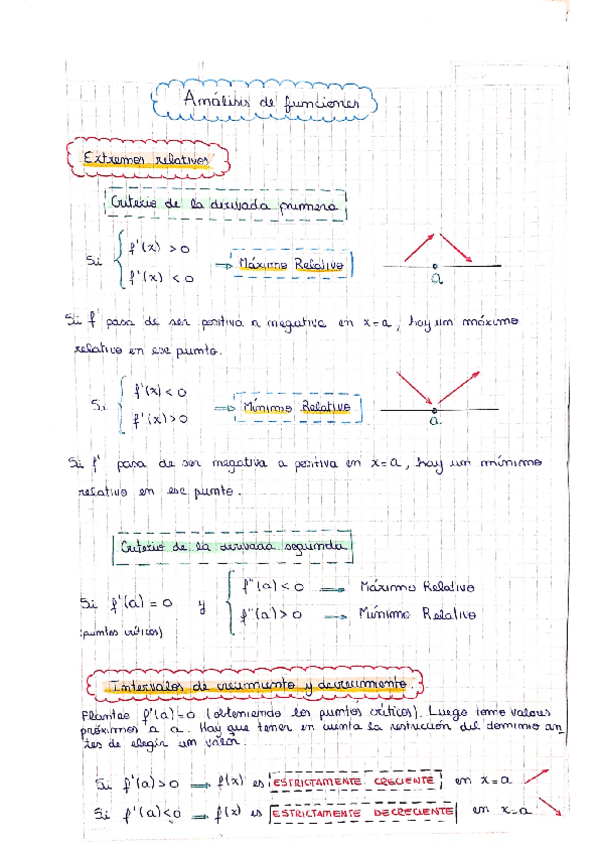 Análisis de funciones
Extremos relativos
Criterio de la derivada primera
Si { f'(x) > 0
f'(x) < 0 ⇒ Máximo Relativo
a
Si f' pasa de ser positiva a negativa en x=a, hay un máximo
relativo en ese punto.
Si { f'(x) < 0
f'(x) > 0 ⇒ Mínimo Relativo
a
Si f' pasa de ser negativa a positiva en x=a, hay un mínimo
relativo en ese punto.
Criterio de la derivada segunda
Si f'(a) = 0 y { f''(a) < 0 ⇒ Máximo Relativo
f''(a) > 0 → Mínimo Relativo
(puntos críticos)
Intervalos de crecimiento y decrecimiento
Planteo f'(a)=0 (obteniendo los puntos críticos). Luego tomo valores
próximos a a. Hay que tener en cuenta la restricción del dominio an
tes de elegir un valor.
Si f'(a)>0 ⇒ f(x) es ESTRICTAMENTE CRECIENTE en x=a
Si f'(a)<0 ⇒ f(x) es ESTRICTAMENTE DECRECIENTE en x=a